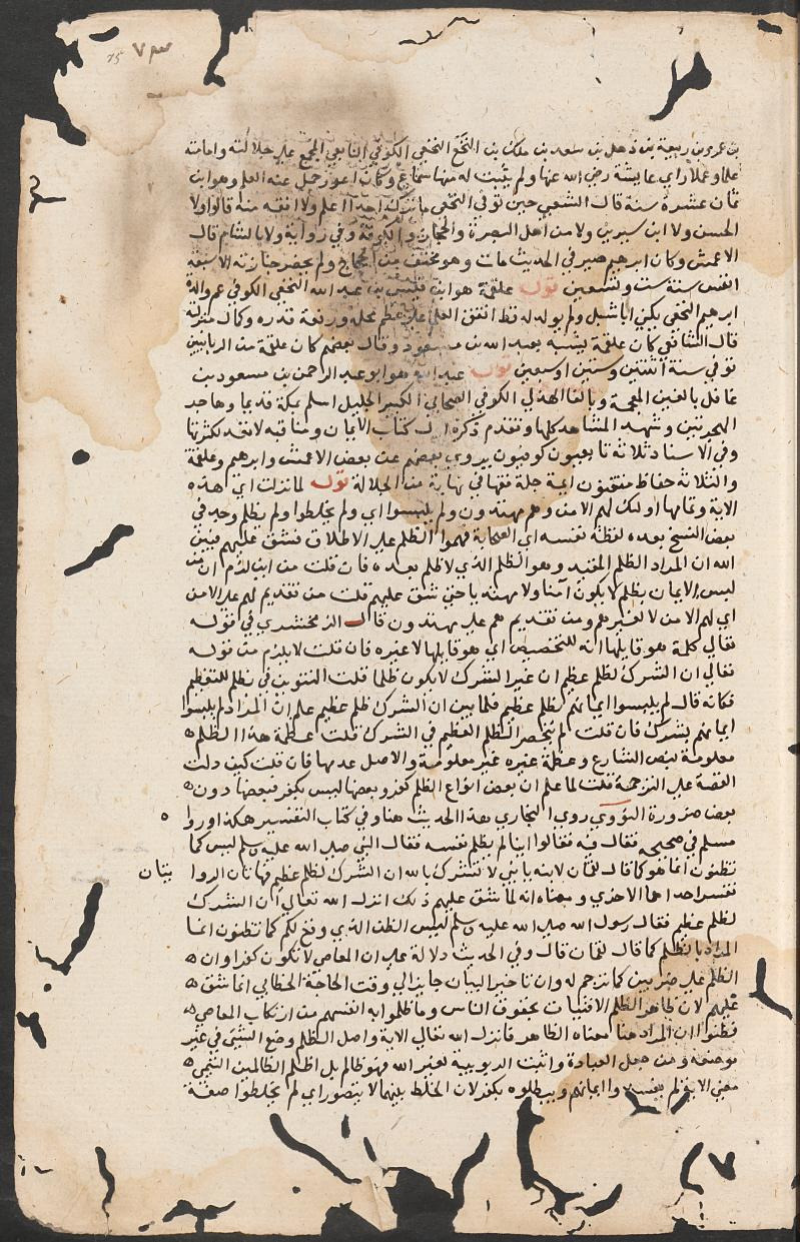 بن عمرو بن ربيعة بن ذهل بن سعد بن ملك بن النخع النخعي الكوفي التابعي المجمع علي جلالته وامامته
علما وعملا راي عايشة رضي الله عنها ولم يثبت له منها سماع وكان اعور حمل عنه العلم وهو ابن
ثمان عشرة سنة قال الشعبي حين توفي النخعي ما ترك احدا اعلم ولا افقه منه قالوا ولا
الحسن ولا ابن سيرين ولا من اهل البصرة والحجاز والكوفة وفي رواية ولا بالشام قال
الاعمش وكان ابرهيم صيرفي الحديث مات وهو مختف من الحجاج ولم يحضر جنازته الا سبعة
انفس سنة ست وتسعين قوله علقمة هو ابن قيس بن عبد الله النخعي الكوفي عم والدة
ابرهيم النخعي يكني ابا شبل ولم يولد له قط اتفق العلما علي عظم محله ورفعة قدره وكمال منزلته
قال النخعي كان علقمة يشبه بعبد الله بن مسعود وقال بعضهم كان علقمة من الربانيين
توفي سنة اثنتين وستين او سبعين قوله عبد الله هو ابو عبد الرحمن بن مسعود بن
غافل بالغين المعجمة وبالفا الهذلي الكوفي الصحابي الكبير الجليل اسلم بمكة قديما وهاجر
الهجرتين وشهد المشاهد كلها وتقدم ذكره اول كتاب الايمان ومناقبه لا تعد لكثرتها
وفي الاسناد ثلاثة تابعيون كوفيون يروي بعضهم عن بعض الاعمش وابرهيم وعلقمة
والثلاثة حفاظ متقنون ايمة جلة فقها في نهاية من الجلالة قوله لما نزلت اي هذه
الاية وتمامها اولئك لهم الامن وهم مهتدون ولم يلبسوا اي ولم يخلطوا ولم يظلم وجد في
بعض النسخ بعده لفظة نفسه اي الصحابة فهموا الظلم علي الاطلاق فشق عليهم فبين
الله ان المراد الظلم المقيد وهو الظلم الذي لا ظلم بعده فان قلت من اين لزم ان من
لبس الايمان بظلم لا يكون آمنا ولا مهتديا حتي شق عليهم قلت من تقديم لهم علي الامن
اي لهم الامن لا لغيرهم ومن تقديم هم علي مهتدون قال الزمخشري في قوله
تعالي كلمة هو قايلها انه للتخصيص اي هو قايلها لا غيره فان قلت لا يلزم من قوله
تعالي ان الشرك لظلم عظيم ان غير الشرك لا يكون ظلما قلت التنوين في بظلم للتعظيم
فكانه قال لم يلبسوا ايمانهم بظلم عظيم فلما بين ان الشرك ظلم عظيم علم ان المراد لم يلبسوا
ايمانهم بشرك فان قلت لم ينحصر الظلم العظيم في الشرك قلت عظمة هذا الظلم
معلومة بنص الشارع وعظمة غيره غير معلومة والاصل عدمها فان قلت كيف دلت
القصة علي الترجمة قلت لما علم ان بعض انواع الظلم كفر وبعضها ليس بكفر فبعضها دون
بعض ضرورة النووي روي البخاري هذا الحديث هنا وفي كتاب التفسير هكذا وروا
مسلم في صحيحه فقال فيه فقالوا اينا لم يظلم نفسه فقال النبي صلي الله عليه وسلم ليس كما
تظنون انما هو كما قال لقمان لابنه يا بني لا تشرك بالله ان الشرك لظلم عظيم فهاتان الروا يتان
تفسر احداهما الاخري ومعناه انه لما شق عليهم ذلك انزل الله تعالي ان الشرك
لظلم عظيم فقال رسول الله صلي الله عليه وسلم ليس الظن الذي وقع لكم كما تظنون انما
المراد بالظلم كما قال لقمان قال وفي الحديث دلالة علي ان المعاصي لا تكون كفرا وان
الظلم علي ضربين كما ترجم له وان تاخير البيان جايز الي وقت الحاجة الخطابي انما شق
عليهم لان ظاهر الظلم الافتيات بحقوق الناس وما ظلموا به انفسهم من ارتكاب المعاصي
فظنوا ان المراد هنا معناه الظاهر فانزل الله تعالي الاية واصل الظلم وضع الشي في غير
موضعه ومن جعل العبادة واثبت الربوبية لغير الله فهو ظالم بل اظلم الظالمين التيمي
معني الاية لم يفسدوا ايمانهم ويبطلوه بكفر لان الخلط بينهما لا يتصور اي لم يخلطوا صفة